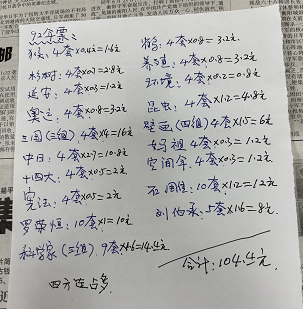 92年票:
孙农: 4套×0.4元=1.6元
杉树: 4套×0.7=2.8元
延安: 4套×0.3=1.2元
奥运: 4套×0.8=3.2元
三国(三组) 4套×4=16元
中日: 4套×2.7=10.8元
十四大: 4套×0.5=2元
宪法: 4套×0.5=2元
罗荣恒: 10套×1=10元
科学家(三组) 9套×1.6=14.4元
四方连占多.
鹳: 4套×0.8=3.2元
4套×0.8=3.2元
环境: 4套×0.2=0.8元
昆虫: 4套×1.2=4.8元
壁画(四组) 4套×1.5=6元
妈祖 4套×0.3=1.2元
空间年 4套×0.3=1.2元
10套×1.2=12元
刘伯承: 5套×1.6=8元
合计: 104.4元.